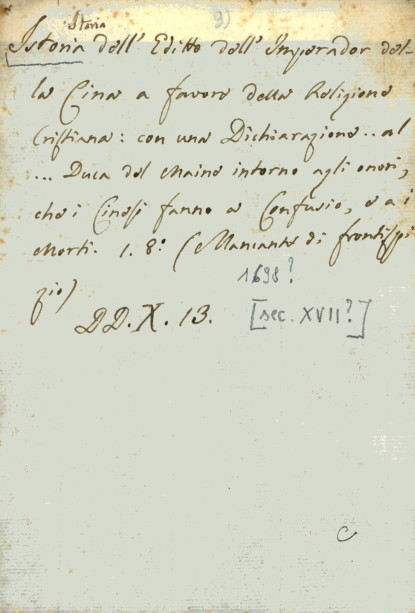 Storia 9)
Istoria dell' Editto dell' Imperador del-
la Cina a favore della Religione
Cristiana: con una Dichiarazione .. al
... Duca del Maine intorno agli onori,
che i Cinesi fanno a Confusio, e a i
Morti. 1. 8.° (Mancante di frontispi
zio)
1698?
DD. X. 13. [sec. XVII?]
C